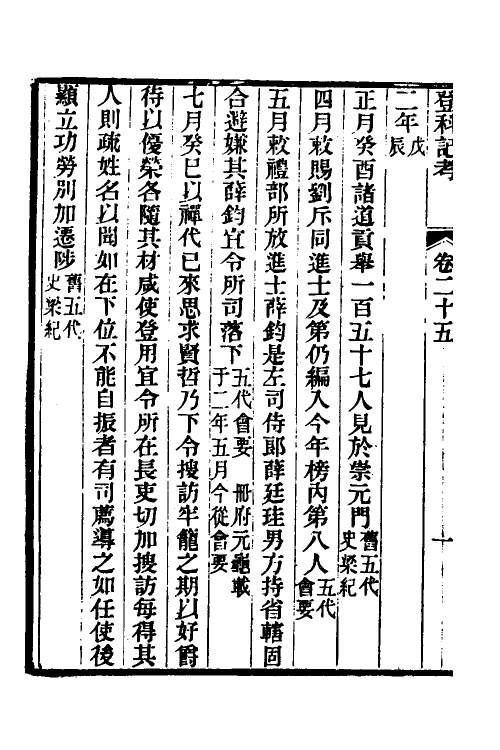 登科記考 卷二十五 一
二年戊辰
正月癸酉諸道貢舉一百五十七人見於崇元門舊五代史梁紀
四月敕賜劉斥同進士及第仍編入今年榜內第八人五代會要
五月敕禮部所放進士薛鈞是左司侍郎薛廷珪男方持省轄固
合避嫌其薛鈞宜令所司落下五代會要 冊府元龜載于二年五月今從會要
七月癸巳以禪代已來思求賢哲乃下令搜訪牢籠之期以好爵
待以優榮各隨其材咸使登用宜令所在長吏切加搜訪每得其
人則疏姓名以聞如在下位不能自振者有司薦導之如任使後
顯立功勞別加遷陟舊五代史梁紀